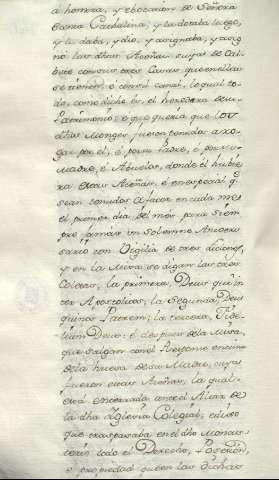 á honrra, y ebocacion de Señora
Santa Cathalina, y la dotaba luego,
y la daba, y dio, y asignaba, y asig
nó las dhas Aceñas
con sus Casas que en ellas
se tienen, é con su canal, lo qual to
do, como dicho es, el heredera de su
Patrimonio; é que queria que los
dhos Monges fuesen tenudos a ro
gar por el, é por su Padre, é por su
Madre, é Abuelos, donde el hubie
ra estas Aceñas, é en especial q.
sean tenudos a facer en cada mes
el primer dia del mes para siem
pre jamas un solemne Aniver
sario con Vigilia de tres liciones,
y en la Misa se digan las tres
Colectas, la primera, Deus qui in
ter Apostolicos; la segunda, Deus
qui nos Patrem; la tercera, Fide
lium Deus: é despues de la Misa,
que salgan con el Responso encima
de la huesa de su Madre, cuyas
fueron estas Aceñas, la qual
está enterrada ante el Altar de
la dha Iglesia Colegial; é dixo
que traspasaba en el dho Monas
terio todo el Derecho, Posesion,
é propiedad que en las dichas